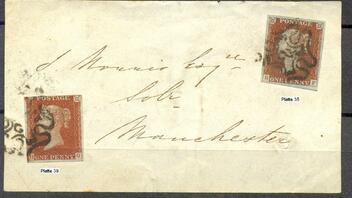 POSTAGE
ONE PENNY
Platte 35
Esqre
Solr
Manchester
POSTAGE
ONE PENNY
Platte 39